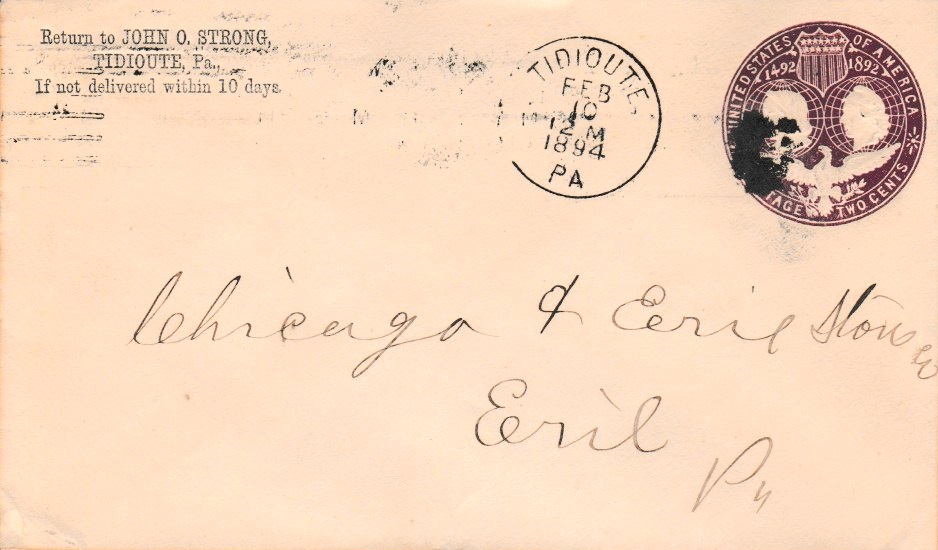 Return to JOHN O. STRONG,
TIDIOUTE, Pa.,
If not delivered within 10 days.
TIDIOUTE,
FEB
10
12 M
1894
PA
UNITED STATES OF AMERICA
1492 1892
TAGE TWO CENTS
Chicago & Erie Stove
Erie
Pa